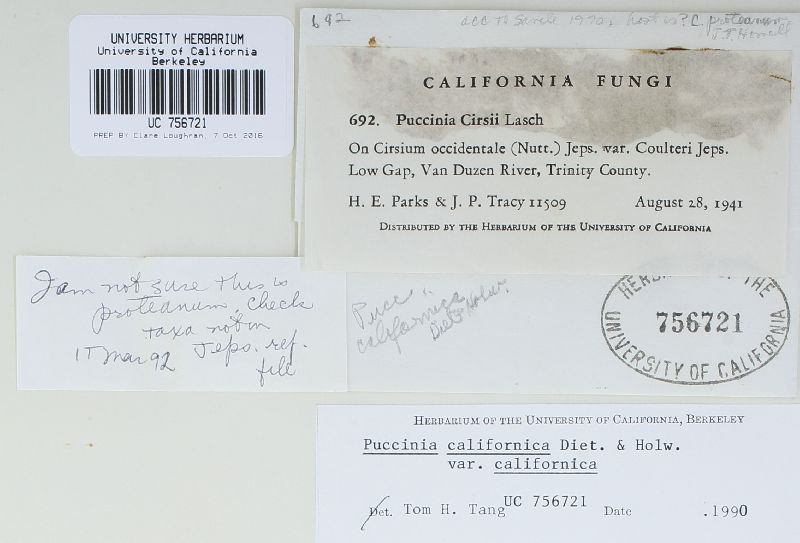 UNIVERSITY HERBARIUM
University of California
Berkeley
UC 756721
PREP BY Clare Loughran, 7 Oct 2016
692
acc to Savile 1970, host is ? C. proteanum
J.T. Howell
CALIFORNIA FUNGI
692. Puccinia Cirsii Lasch
On Cirsium occidentale (Nutt.) Jeps. var. Coulteri Jeps.
Low Gap, Van Duzen River, Trinity County.
H. E. Parks & J. P. Tracy 11509 August 28, 1941
Distributed by the Herbarium of the University of California
I am not sure this is
proteanum, check
taxa not in
17 Mar 92 Jeps. ref.
file
Pucc.
californica
Diet & Holw.
HERBARIUM OF THE
756721
UNIVERSITY OF CALIFORNIA
Herbarium of the University of California, Berkeley
Puccinia californica Diet. & Holw.
var. californica
Det. Tom H. Tang UC 756721 Date .1990